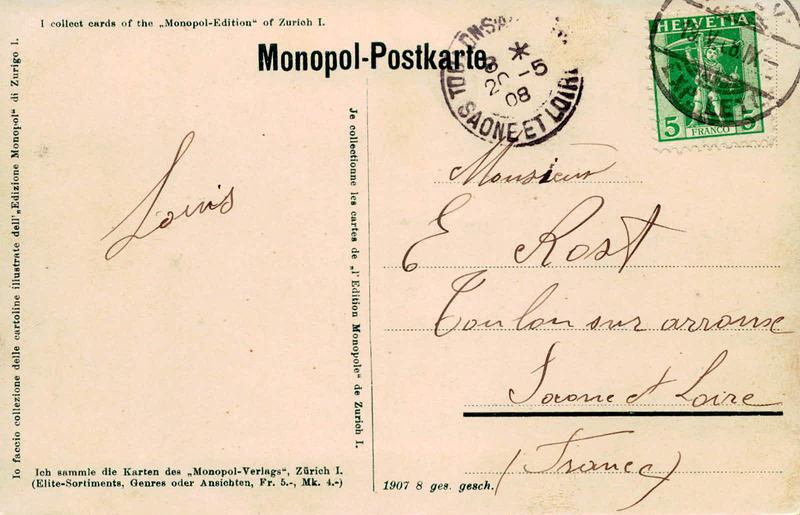 I collect cards of the „Monopol-Edition" of Zurich I.
Monopol-Postkarte.
SAONE ET LOIRE
20 - 5
08
HELVETIA
5 FRANCO 5
Io faccio collezione delle cartoline illustrate dell'„Edizione Monopol" di Zurigo I.
Je collectionne les cartes de „l'Edition Monopole" de Zurich I.
Louis
Monsieur
E Rost
Toulon sur arroux
Saone et Loire
(France)
Ich sammle die Karten des „Monopol-Verlags", Zürich I.
(Elite-Sortiments, Genres oder Ansichten, Fr. 5.-, Mk. 4.-)
1907 8 ges. gesch.